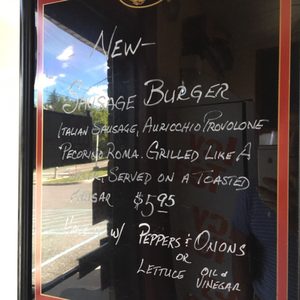 NEW-
SAUSAGE BURGER
ITALIAN SAUSAGE, AURICCHIO PROVOLONE
+ PECORINO ROMA. GRILLED LIKE A
SERVED ON A TOASTED
$5.95
W/ PEPPERS & ONIONS
OR
LETTUCE OIL & VINEGAR